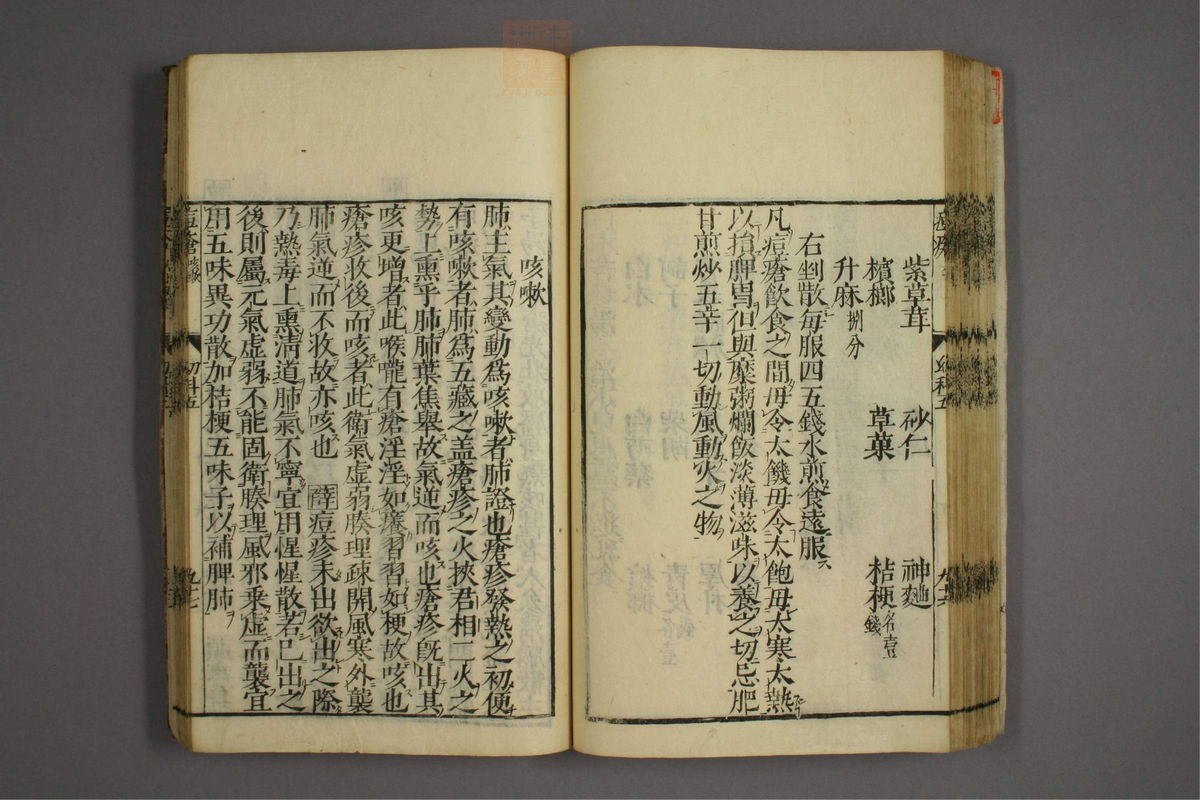 紫草茸 砂仁 神麯
檳榔 草菓 桔梗各壹錢
升麻捌分
右剉散每服四五錢水煎食遠服
凡痘瘡飲食之間毋令太饑毋令太飽毋太寒太熱
以損脾胃但與糜粥爛飯淡薄滋味以養之切忌肥
甘煎炒五辛一切動風動火之物
咳嗽
肺主氣其變動為咳嗽者肺證也瘡疹發熱之初便
有咳嗽者肺為五藏之盖瘡疹之火挾君相二火之
勢上熏乎肺肺葉焦舉故氣逆而咳也瘡疹既出其
咳更增者此喉嚨有瘡淫淫如癢習習如梗故咳也
瘡疹收後而咳者此衛氣虛弱腠理疎開風寒外襲
肺氣逆而不收故亦咳也 薛痘疹未出欲出之際
乃熱毒上熏清道肺氣不寧宜用惺惺散若已出之
後則屬元氣虛弱不能固衛腠理風邪乘虛而襲宜
用五味異功散加桔梗五味子以補脾肺
幼科五
九十七